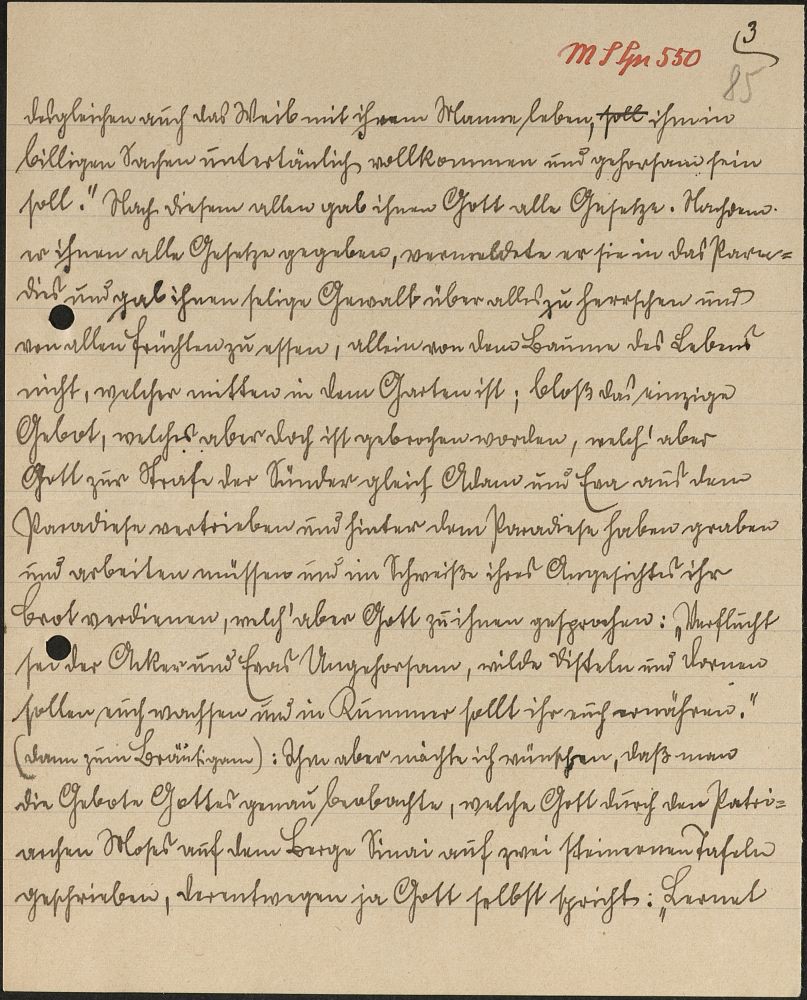 3
M S Gri 550
85
desgleichen auch das Weib mit ihrem Manne leben, soll ihm in
billigen Sachen untertänlich, vollkommen und gehorsam sein
soll." Nach diesem allen gab ihnen Gott alle Gesetze. Nachdem
er ihnen alle Gesetze gegeben, vermeldete er sie in das Para=
dies und gab ihnen selige Gewalt über alles zu herrschen und
von allen Früchten zu essen, allein von dem Baume des Lebens
nicht, welcher mitten in dem Garten ist; bloß das einzige
Gebot, welches aber doch ist gebrochen worden, welch' aber
Gott zur Strafe der Sünder gleich Adam und Eva aus dem
Paradiese vertrieben und hinter dem Paradiese haben graben
und arbeiten müssen und im Schweiße ihres Angesichtes ihr
Brot verdienen, welch' aber Gott zu ihnen gesprochen: „Verflucht
sei der Acker und Evas Ungehorsam, wilde Disteln und Dornen
sollen euch wachsen und in Kummer sollt ihr euch ernähren."
(Dann zum Bräutigam): Ihm aber möchte ich wünschen, daß man
die Gebote Gottes genau beobachte, welche Gott durch den Patri=
archen Moses auf dem Berge Sinai auf zwei steinernen Tafeln
geschrieben, derentwegen ja Gott selbst spricht: „Lernet